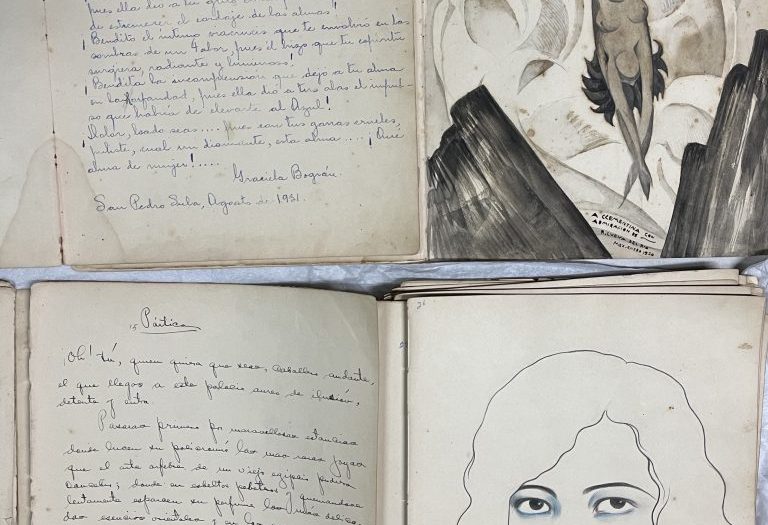 pues ella dió a tu
de estremecer el cordaje de las almas!
¡Bendito el íntimo viacrucis que te envolvió en las
sombras de un Tabor, pues el hizo que tu espíritu
surgiera radiante y luminoso!
¡Bendita la incomprensión que dejó a tu alma
en la orfandad, pues ella dió a tus alas el impul-
so que habría de elevarte al Azul!
¡Dolor, loado seas.... pues con tus garras crueles,
puliste, cual un diamante, esta alma....! ¡Qué
alma de mujer!....
Graciela Bográn.
San Pedro Sula, Agosto de 1931.
A CLEMENTINA CON
ADMIRACION DE
Pórtico
¡Oh! tú, quien quiera que seas, caballero andante,
el que llegas a este palacio aureo de ilusión,
detente y entra.
Pasarás primero por maravillosas estancias
donde lucen su policromía las más raras joyas
que el arte orfebre de un viejo egipcio pudiera
donde en esbeltos pebeteros quemándose
lentamente esparcen su perfume las más delica-
das esencias orientales y en las
26